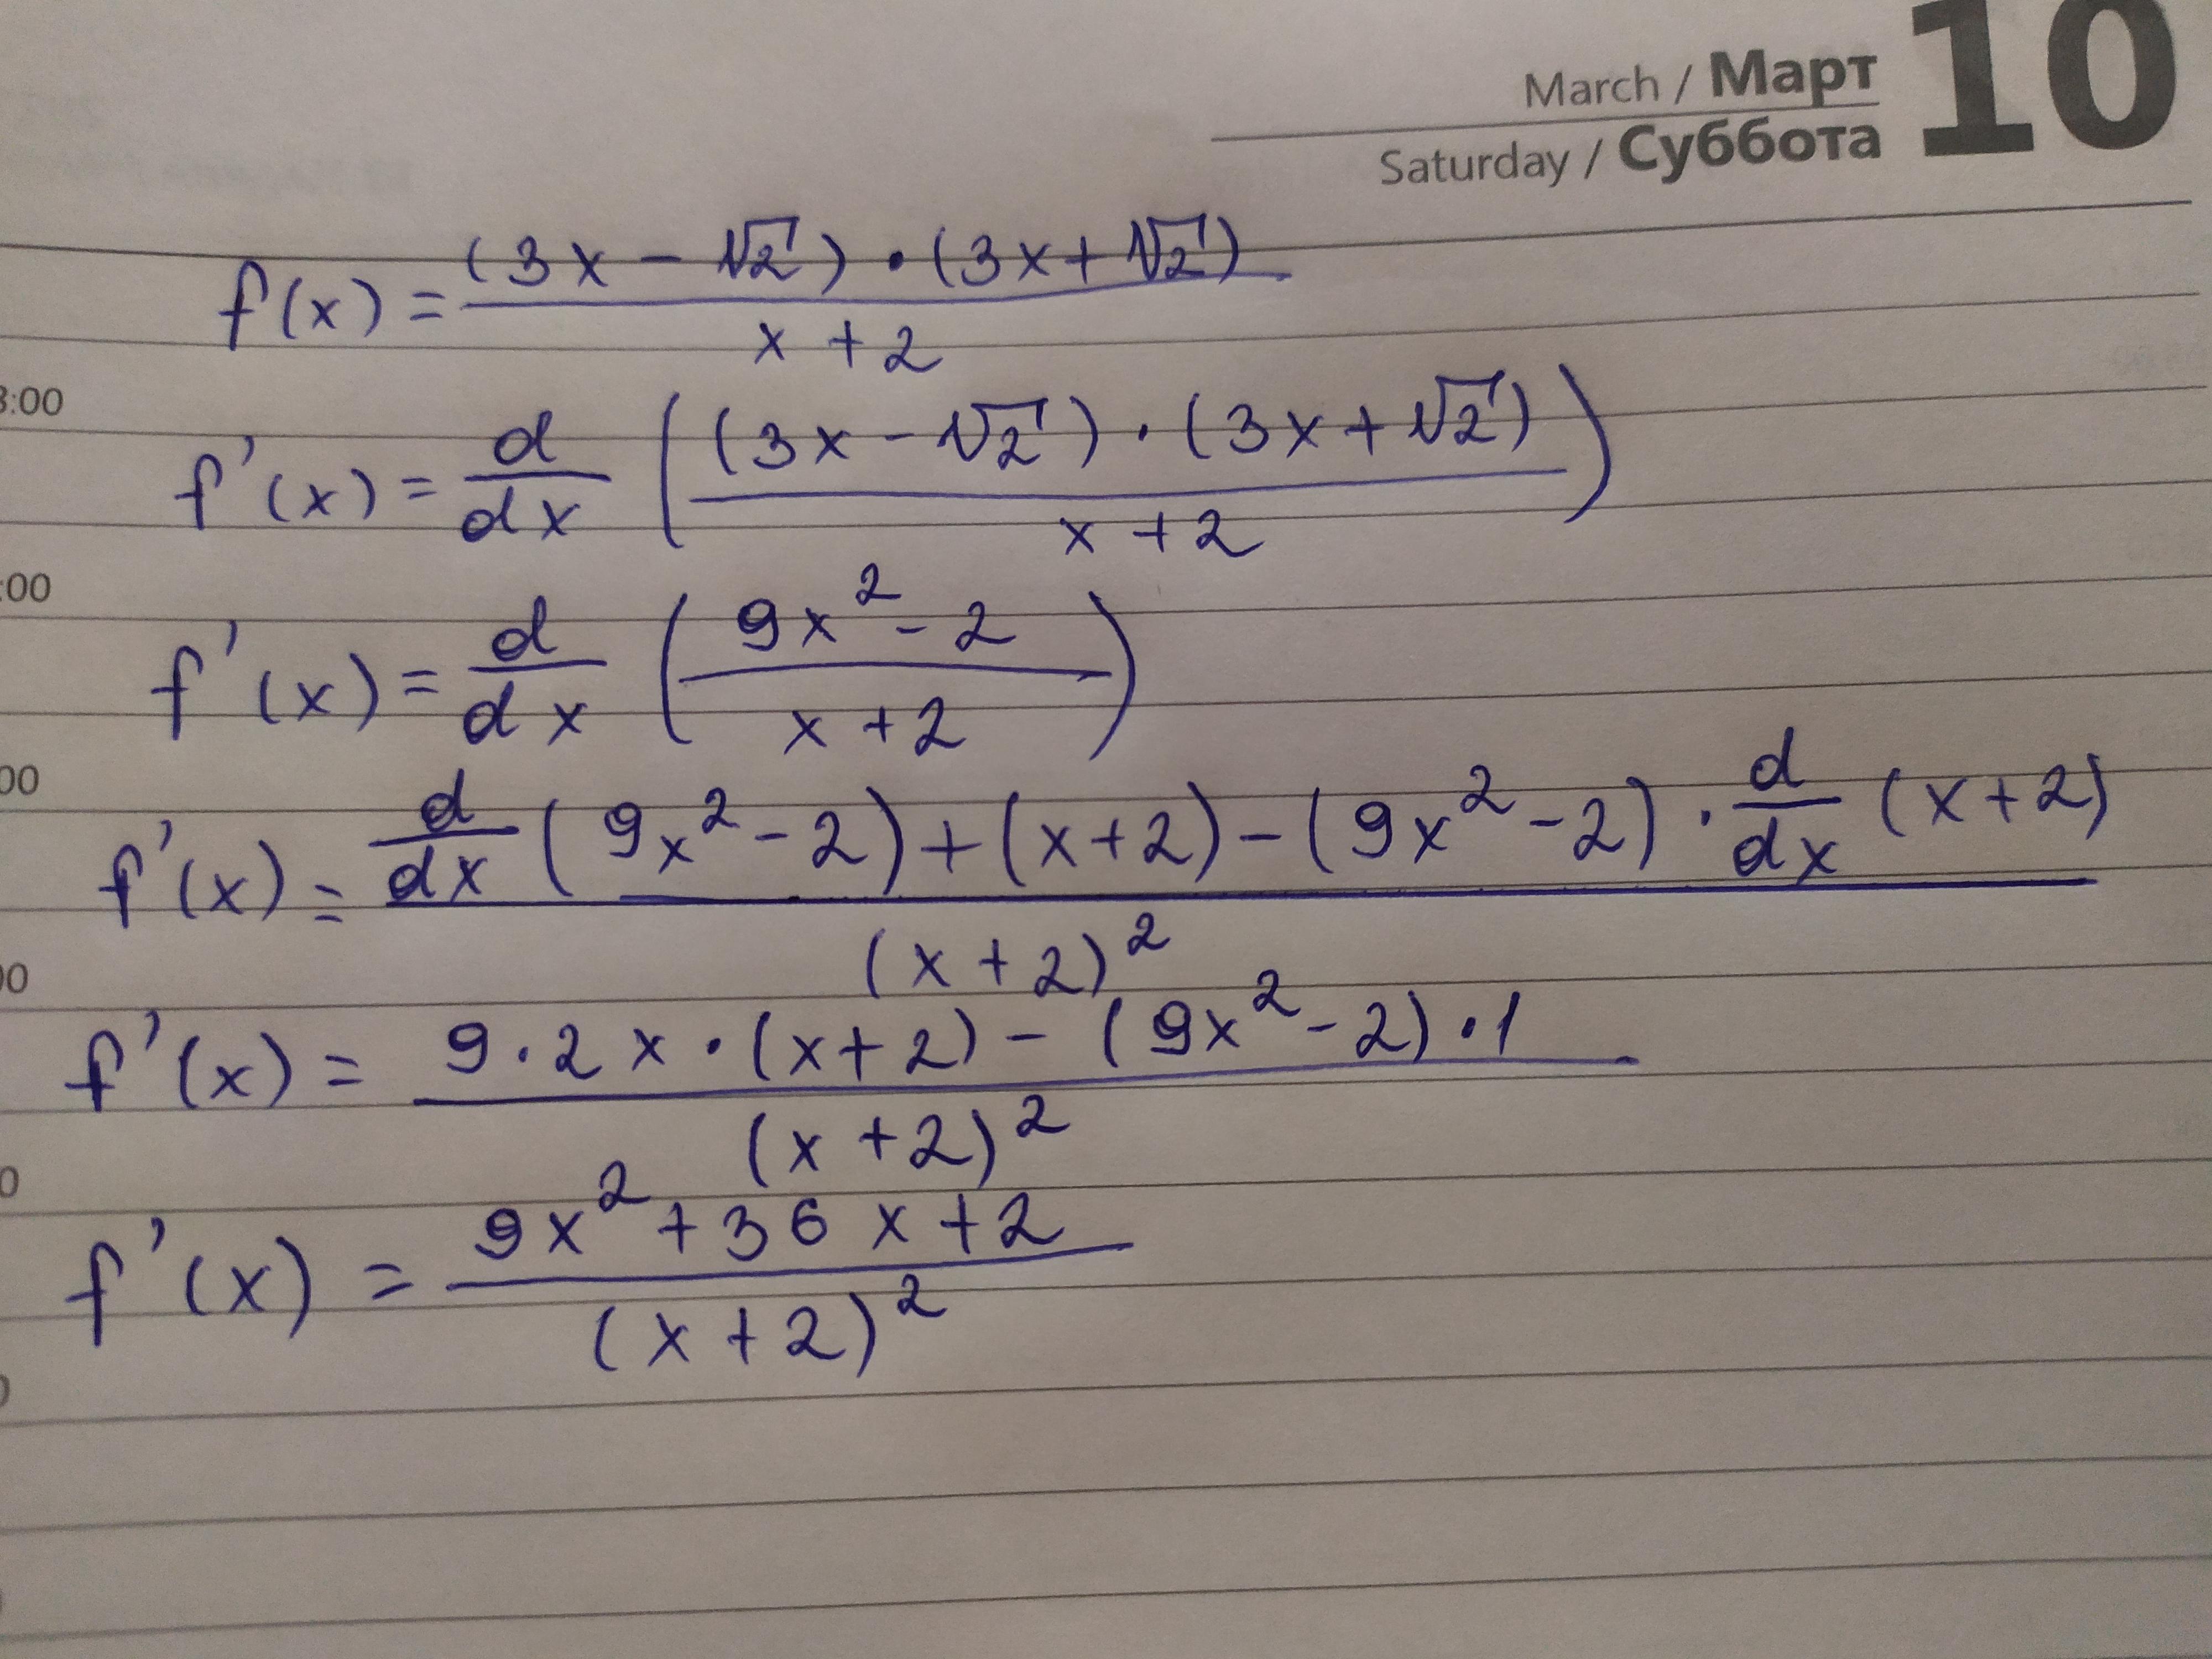 March / Март 10
Saturday / Суббота
f(x) = ((3x - √2) · (3x + √2)) / (x + 2)
8:00
f'(x) = d/dx ( ((3x - √2) · (3x + √2)) / (x + 2) )
:00
f'(x) = d/dx ( (9x² - 2) / (x + 2) )
00
f'(x) = ( d/dx (9x² - 2) + (x + 2) - (9x² - 2) · d/dx (x + 2) ) / (x + 2)²
00
f'(x) = ( 9 · 2x · (x + 2) - (9x² - 2) · 1 ) / (x + 2)²
0
f'(x) = (9x² + 36x + 2) / (x + 2)²